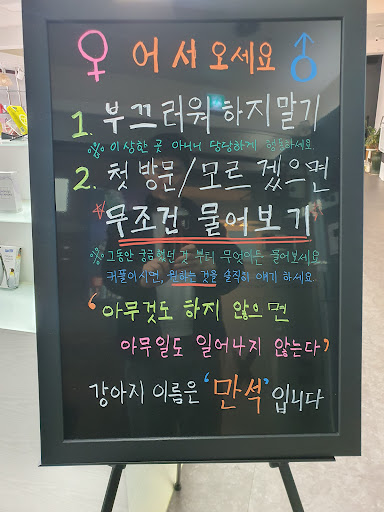 ♀ 어서오세요 ♂
1. 부끄러워 하지말기
※ 이상한 곳 아니니 당당하게 행동하세요
2. 첫 방문/모르겠으면
*무조건 물어보기*
※ 그동안 궁금했던 것 부터 무엇이든 물어보세요
커플이시면, 원하는 것을 솔직히 얘기 하세요..
'아무것도 하지 않으면
아무일도 일어나지 않는다'
강아지 이름은 '만석' 입니다